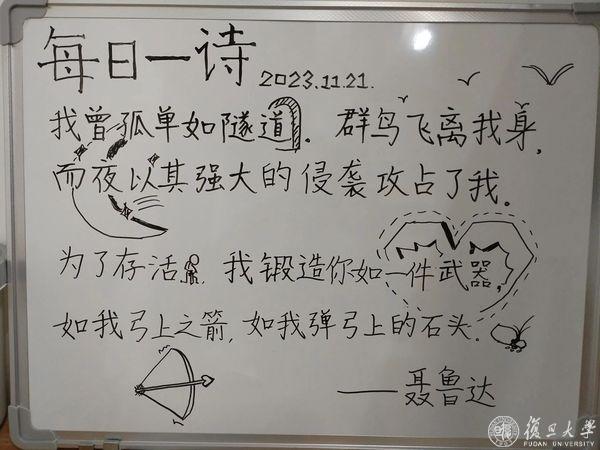 每日一诗 2023.11.21.
我曾孤单如隧道。群鸟飞离我身,
而夜以其强大的侵袭攻占了我。
为了存活,我锻造你如一件武器,
如我弓上之箭,如我弹弓上的石头。
——聂鲁达
復旦大學
FUDAN UNIVERSITY